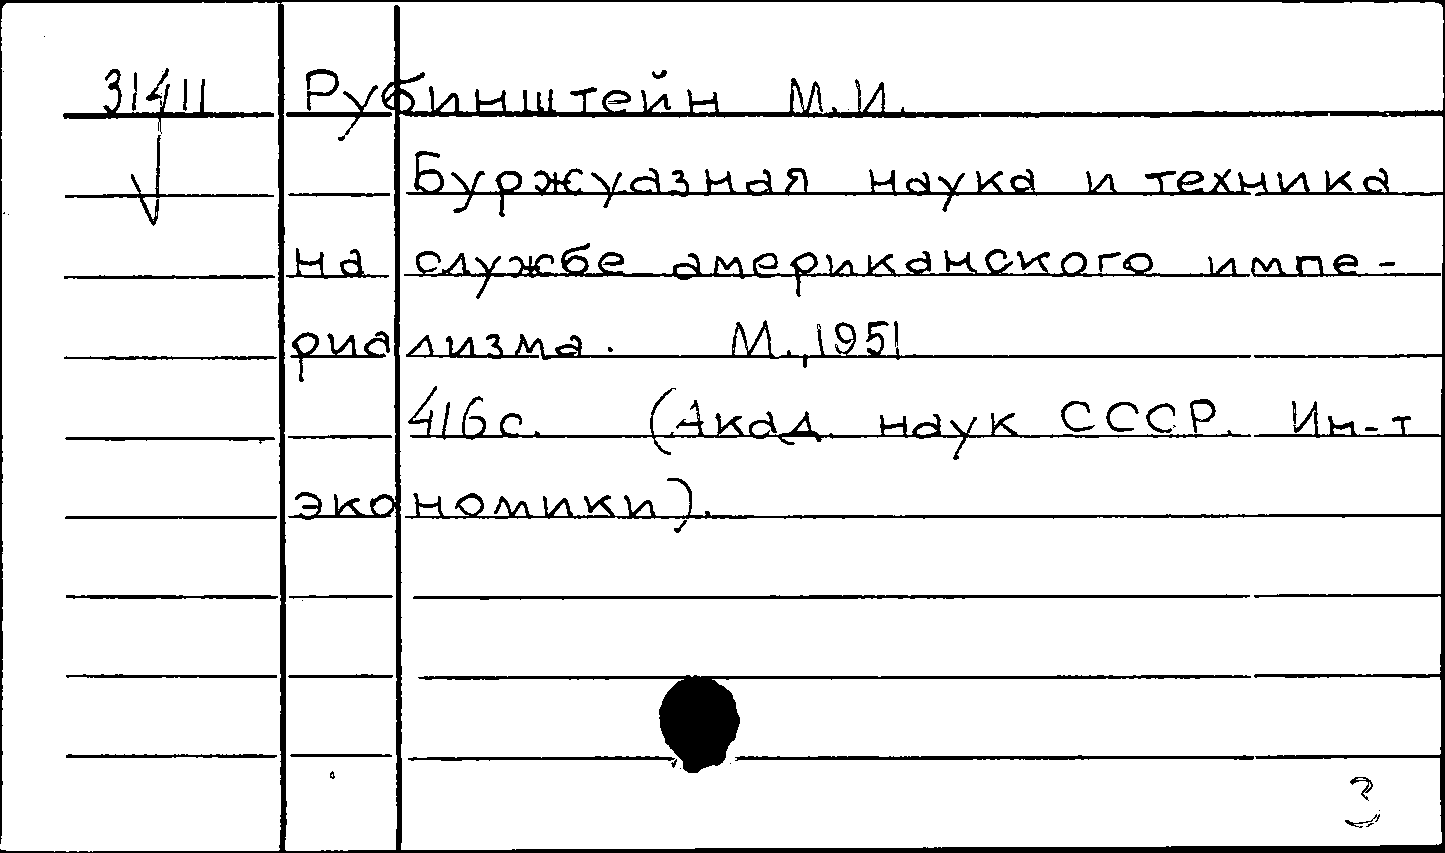 31411 Рубинштейн М.И.
Буржуазная наука и техника
на службе американского импе-
риализма. М., 1951
416с. (Акад. наук СССР. Ин-т
экономики).
3